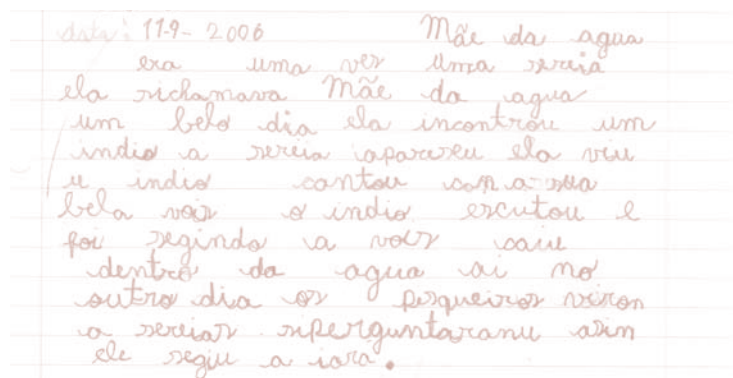 data: 11-9-2006 Mãe da agua
era uma ves uma sereia
ela sichamava Mãe da agua
um belo dia ela incontrou um
indio a sereia apareseu ela viu
u indio cantou con a sua
bela vois o indio escutou e
foi segindo a voes caiu
dentro da agua ai no
outro dia os pesqueiros viron
a sereias siperguntaranu asin
ele segiu a iara.